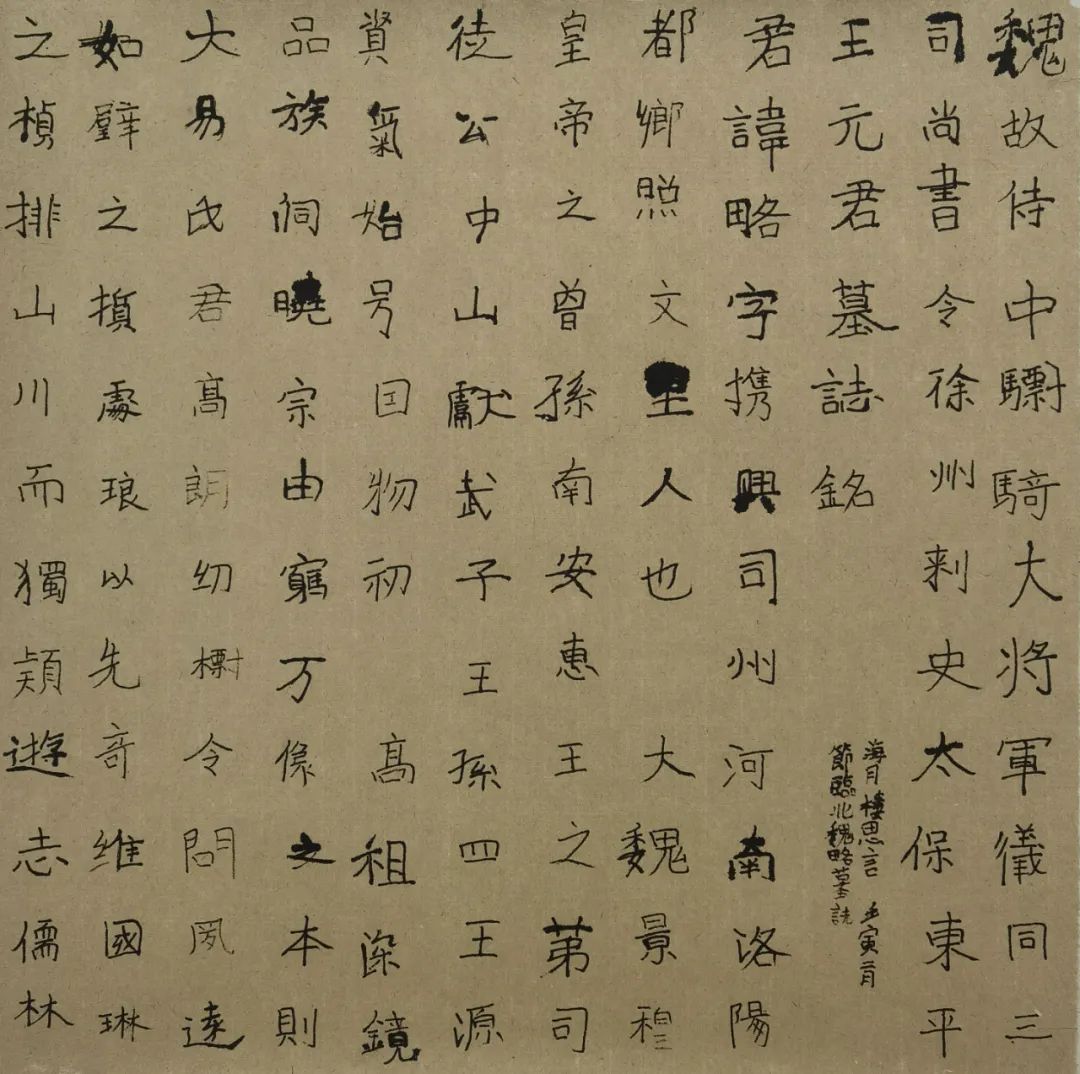 魏故侍中驃騎大将軍儀同三
司尚書令徐州刺史太保東平
王元君墓誌銘
海月楼思言 壬寅二月
節臨北魏略墓誌
君諱略字携興司州河南洛陽
都鄉照文里人也 大魏景穆
皇帝之曽孫南安惠王之第司
徒公中山獻武子王孫四王源
資氣始号因物初 高祖深鏡
品族洞曉宗由窮万像之本則
大易氏君高朗幼㯹令問夙遠
如璧之損處琅以先奇維國琳
之楨排山川而獨穎遊志儒林